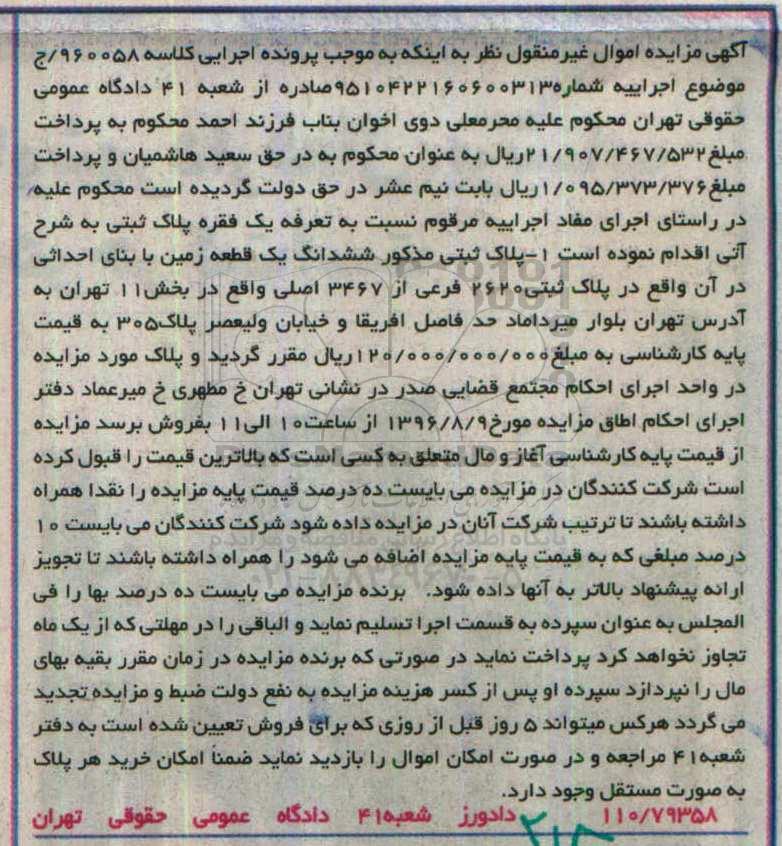 آگهی مزایده اموال غیرمنقول نظر به اینکه به موجب پرونده اجرایی کلاسه ۹۶۰۰۵۸/ج
موضوع اجراییه شماره۹۵۱۰۴۲۲۱۶۰۶۰۰۳۱۳صادره از شعبه ۴۱ دادگاه عمومی
حقوقی تهران محکوم علیه محرمعلی دوی اخوان بناب فرزند احمد محکوم به پرداخت
مبلغ۲۱/۹۰۷/۴۶۷/۵۳۲ریال به عنوان محکوم به در حق سعید هاشمیان و پرداخت
مبلغ۱/۰۹۵/۳۷۳/۳۷۶ریال بابت نیم عشر در حق دولت گردیده است محکوم علیه
در راستای اجرای مفاد اجراییه مرقوم نسبت به تعرفه یک فقره پلاک ثبتی به شرح
آتی اقدام نموده است ۱-پلاک ثبتی مذکور ششدانگ یک قطعه زمین با بنای احداثی
در آن واقع در پلاک ثبتی۲۶۲۰ فرعی از ۳۴۶۷ اصلی واقع در بخش۱۱ تهران به
آدرس تهران بلوار میرداماد حد فاصل افریقا و خیابان ولیعصر پلاک۳۰۵ به قیمت
پایه کارشناسی به مبلغ۱۲۰/۰۰۰/۰۰۰/۰۰۰ریال مقرر گردید و پلاک مورد مزایده
در واحد اجرای احکام مجتمع قضایی صدر در نشانی تهران خ مطهری خ میرعماد دفتر
اجرای احکام اطاق مزایده مورخ۱۳۹۶/۸/۹ از ساعت۱۰ الی۱۱ بفروش برسد مزایده
از قیمت پایه کارشناسی آغاز و مال متعلق به کسی است که بالاترین قیمت را قبول کرده
است شرکت کنندگان در مزایده می بایست ده درصد قیمت پایه مزایده را نقدا همراه
داشته باشند تا ترتیب شرکت آنان در مزایده داده شود شرکت کنندگان می بایست ۱۰
درصد مبلغی که به قیمت پایه مزایده اضافه می شود را همراه داشته باشند تا تجویز
ارائه پیشنهاد بالاتر به آنها داده شود. برنده مزایده می بایست ده درصد بها را فی
المجلس به عنوان سپرده به قسمت اجرا تسلیم نماید و الباقی را در مهلتی که از یک ماه
تجاوز نخواهد کرد پرداخت نماید در صورتی که برنده مزایده در زمان مقرر بقیه بهای
مال را نپردازد سپرده او پس از کسر هزینه مزایده به نفع دولت ضبط و مزایده تجدید
می گردد هرکس میتواند ۵ روز قبل از روزی که برای فروش تعیین شده است به دفتر
شعبه۴۱ مراجعه و در صورت امکان اموال را بازدید نماید ضمناً امکان خرید هر پلاک
به صورت مستقل وجود دارد.
۱۱۰/۷۹۳۵۸ دادورز شعبه۴۱ دادگاه عمومی حقوقی تهران